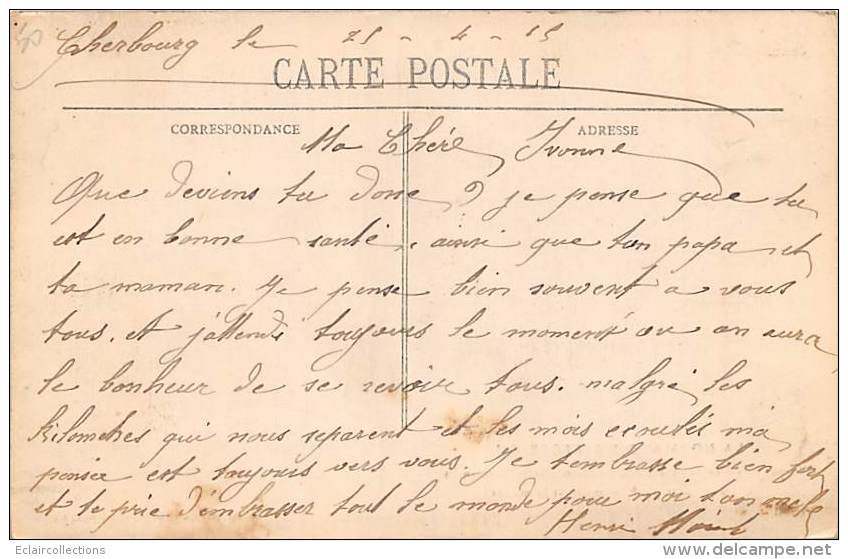 Cherbourg le 25 - 4 - 15
CARTE POSTALE
CORRESPONDANCE
ADRESSE
Ma Chére Yvonne
Que deviens tu donc ? je pense que tu
est en bonne santé, ainsi que ton papa et
ta maman. Je pense bien souvent a vous
tous. et j'attends toujours le moment ou on aura
le bonheur de se revoir tous. malgré les
kilometres qui nous separent et les mois ecoulés ma
pensée est toujours vers vous. Je t'embrasse bien fort
et te prie d'embrasser tout le monde pour moi ton oncle
Henri
Eclaircollections
www.delcampe.net